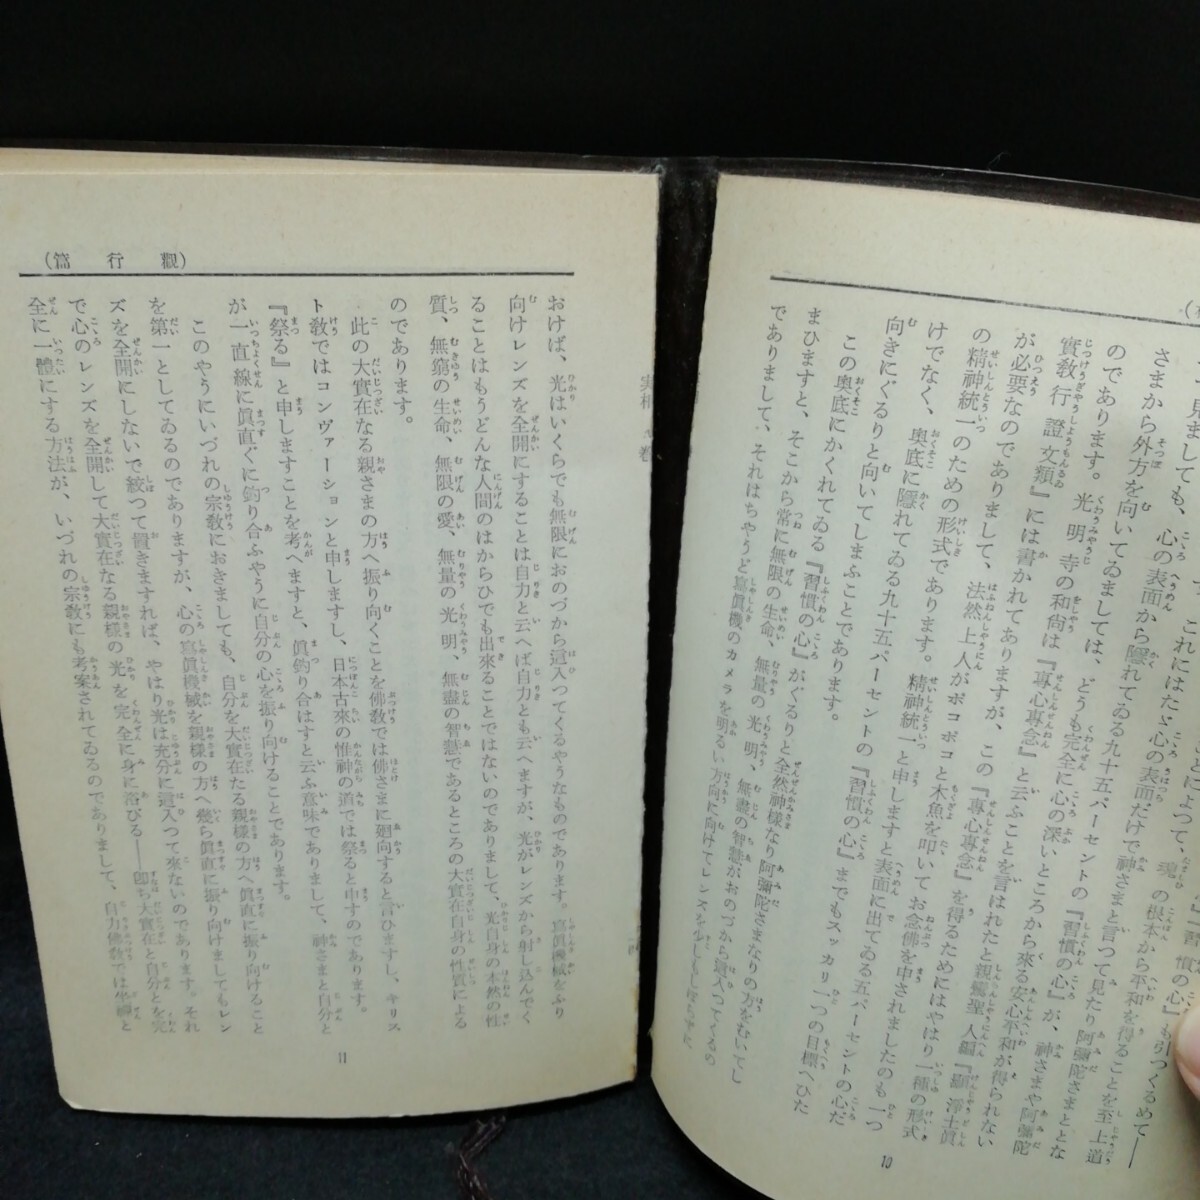 さまから外方を向いてゐましては、どうも完全に心の深いところから來る安心平和が得られない
のであります。光明寺の和尙は『專心專念』と云ふことを言はれたと親鸞聖人編『顯淨土眞
實敎行證文類』には書かれてありますが、この『專心專念』を得るためにはやはり一種の形式
が必要なのでありまして、法然上人がポコポコと木魚を叩いてお念佛を申されましたのも一つ
の精神統一のための形式であります。精神統一と申しますと表面に出てゐる五パーセントの心だ
けでなく、奥底に隱れてゐる九十五パーセントの『習慣の心』までもスッカリ一つの目標へひた
向きにぐるりと向いてしまふことであります。
この奥底にかくれてゐる『習慣の心』がぐるりと全然神樣なり阿彌陀さまなりの方をむいてし
まひますと、そこから常に無限の生命、無量の光明、無盡の智慧がおのづから這入つてくるの
でありまして、それはちやうど寫眞機のカメラを明るい方向に向けてレンズを
10
(觀行篇)
おけば、光はいくらでも無限におのづから這入つてくるやうなものであります。寫眞機械をふり
向けレンズを全開にすることは自力と云へば自力とも云へますが、光がレンズから射し込んでく
ることはもうどんな人間のはからひでも出來ることではないのでありまして、光自身の本然の性
質、無窮の生命、無限の愛、無量の光明、無盡の智慧であるところの大實在自身の性質による
のであります。
此の大實在なる親さまの方へ振り向くことを佛敎では佛さまに廻向すると言ひますし、キリス
ト敎ではコンヴァーションと申しますし、日本古來の惟神の道では祭ると申すのであります。
『祭る』と申しますことを考へますと、眞釣り合はすと云ふ意味でありまして、神さまと自分と
が一直線に眞直ぐに釣り合ふやうに自分の心を振り向けることであります。
このやうにいづれの宗敎におきましても、自分を大實在たる親樣の方へ眞直に振り向けること
を第一としてゐるのでありますが、心の寫眞機械を親樣の方へ幾ら眞直に振り向けましてもレン
ズを全開にしないで絞つて置きますれば、やはり光は充分に這入つて來ないのであります。それ
で心のレンズを全開して大實在なる親樣の光を完全に身に浴びる――卽ち大實在と自分とを完
全に一體にする方法が、いづれの宗敎にも考案されてゐるのでありまして、自力佛敎では坐禪と
11